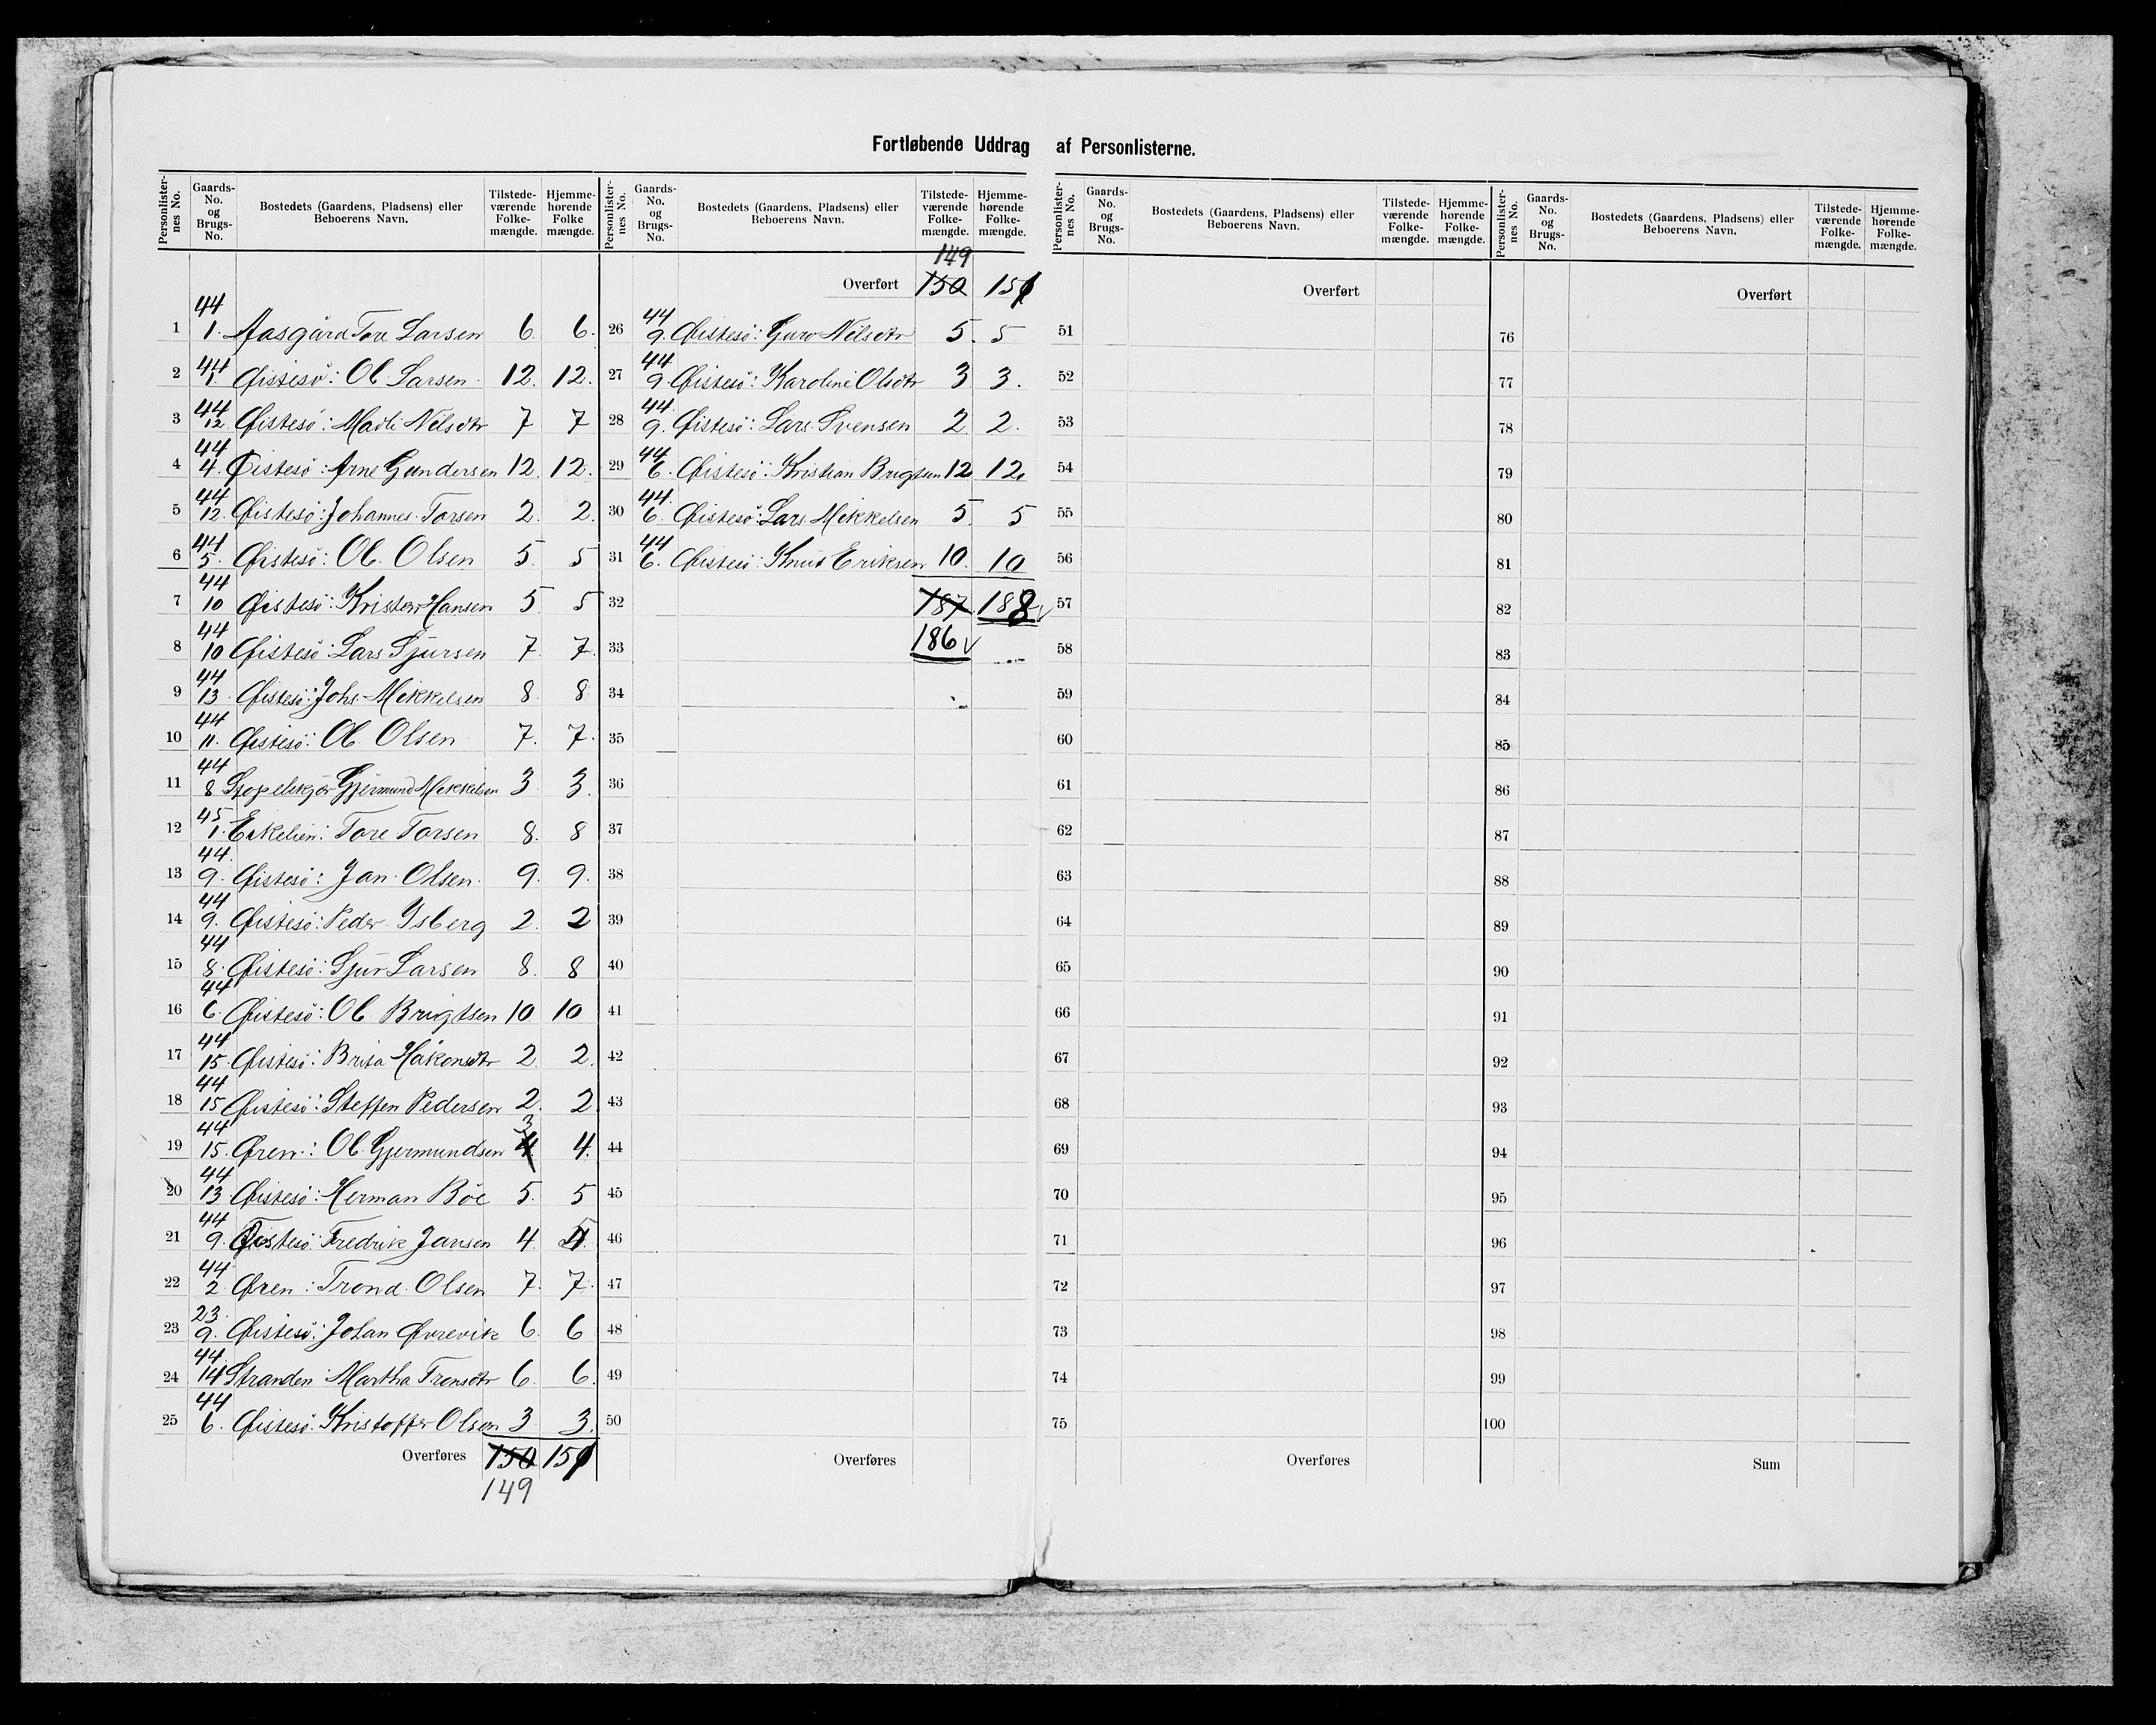 Fortløbende Uddrag af Personlisterne.
Personlister-nes No. Gaards-No. og Brugs-No. Bostedets (Gaardens, Pladsens) eller Beboerens Navn. Tilstede-værende Folke-mængde. Hjemme-hørende Folke mængde.
1 44 1. Aasgård Tore Larsen 6. 6.
2 44 1. Øistesö: Ol. Larsen 12. 12.
3 44 12. Øistesö: Madli Nilsdtr 7 7
4 44 4. Øistesö: Arne Gundersen 12. 12.
5 44 12. Øistesö: Johannes Torsen 2. 2.
6 44 5. Øistesö: Ol. Olsen 5. 5
7 44 10 Øistesö: Krister Hansen 5 5
8 44 10 Øistesö: Lars Sjursen 7. 7.
9 44 13. Øistesö: Johs. Mikkelsen 8. 8
10 44 11. Øistesö: Ol. Olsen 7. 7.
11 44 8 Gjermund Mikkelsen 3. 3.
12 45 1. Eikelien: Tore Torsen 8. 8
13 44. 9. Øistesö: Jan Olsen. 9. 9.
14 44 9. Øistesö: Peder Isberg 2. 2
15 44 8. Øistesö: Sjur Larsen 8. 8
16 44 6. Øistesö: Ol. Brigtsen 10 10
17 44 15. Øistesö: Brita Håkonsdtr 2. 2.
18 44 15 Øistesö: Steffen Pedersen 2. 2
19 44 15. Øren: Ol. Gjermundsen 4. 3 4.
20 44 13 Øistesö: Herman Böe 5. 5
21 44 9. Øistesö: Fredrik Jansen 4. 5
22 44 2. Øren: Trond Olsen 7. 7.
23 23. 9. Øistesö: Johan Øvrevik 6. 6
24 44. 14 Stranden Martha Tronsdtr 6. 6.
25 44 6. Øistesö: Kristoffer Olsen 3. 3.
Overføres 150 151
149
Personlister-nes No. Gaards-No. og Brugs-No. Bostedets (Gaardens, Pladsens) eller Beboerens Navn. Tilstede-værende Folke-mængde. Hjemme-hørende Folke-mængde.
149
Overført 150 151
26 44 9. Øistesö: Guro Nilsdtr 5. 5
27 44 9. Øistesö: Karoline Olsdtr 3 3.
28 44. 9. Øistesö: Lars Svensen 2. 2.
29 44 6. Øistesö: Kristian Brigtsen 12 12.
30 44. 6. Øistesö: Lars Mikkelsen 5. 5
31 44 6. Øistesö: Knut Eriksen 10. 10
32 187. 188
33 186
34
35
36
37
38
39
40
41
42
43
44
45
46
47
48
49
50
Overføres
Personlister-nes No. Gaards-No. og Brugs-No. Bostedets (Gaardens, Pladsens) eller Beboerens Navn. Tilstede-værende Folke-mængde. Hjemme-hørende Folke-mængde.
Overført
51
52
53
54
55
56
57
58
59
60
61
62
63
64
65
66
67
68
69
70
71
72
73
74
75
Overføres
Personlister-nes No. Gaards-No. og Brugs-No. Bostedets (Gaardens, Pladsens) eller Beboerens Navn. Tilstede-værende Folke-mængde. Hjemme-hørende Folke-mængde.
Overført
76
77
78
79
80
81
82
83
84
85
86
87
88
89
90
91
92
93
94
95
96
97
98
99
100
Sum